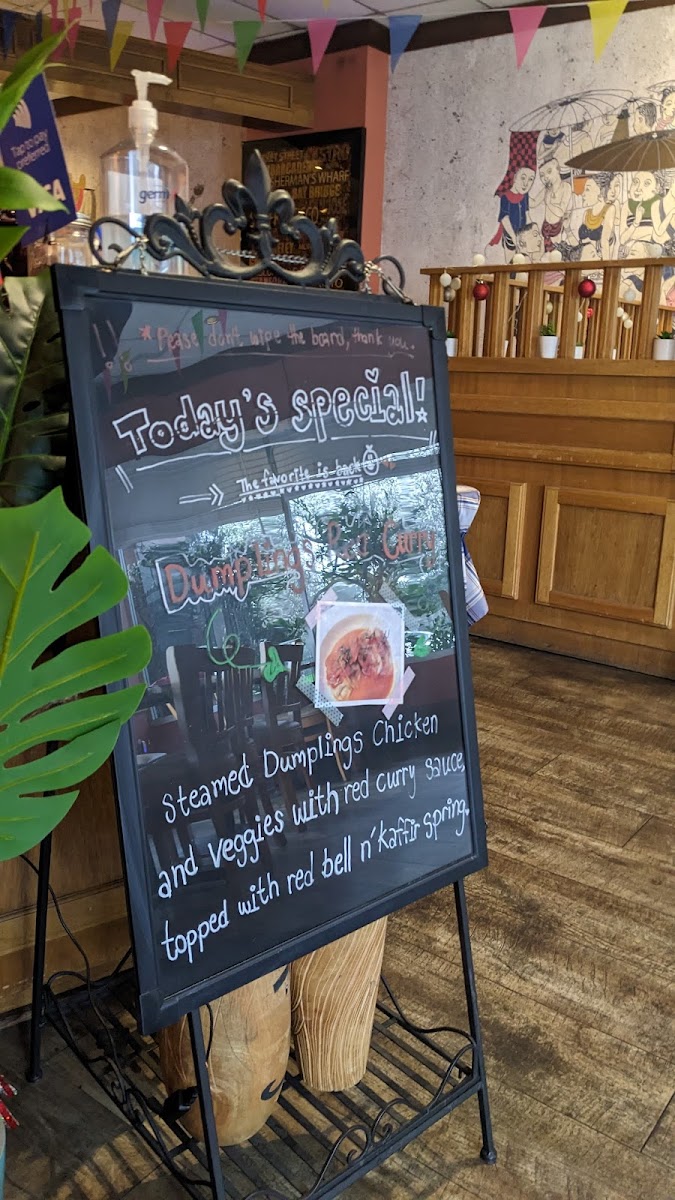 Tap to pay
preferred
VISA
germ
FISHERMAN'S WHARF
* Pease don't wipe the board, thank you.
Today's special!
The favorite is back
Dumplings Red Curry
Steamed Dumplings Chicken
and veggies with red curry sauce,
topped with red bell n' kaffir spring.